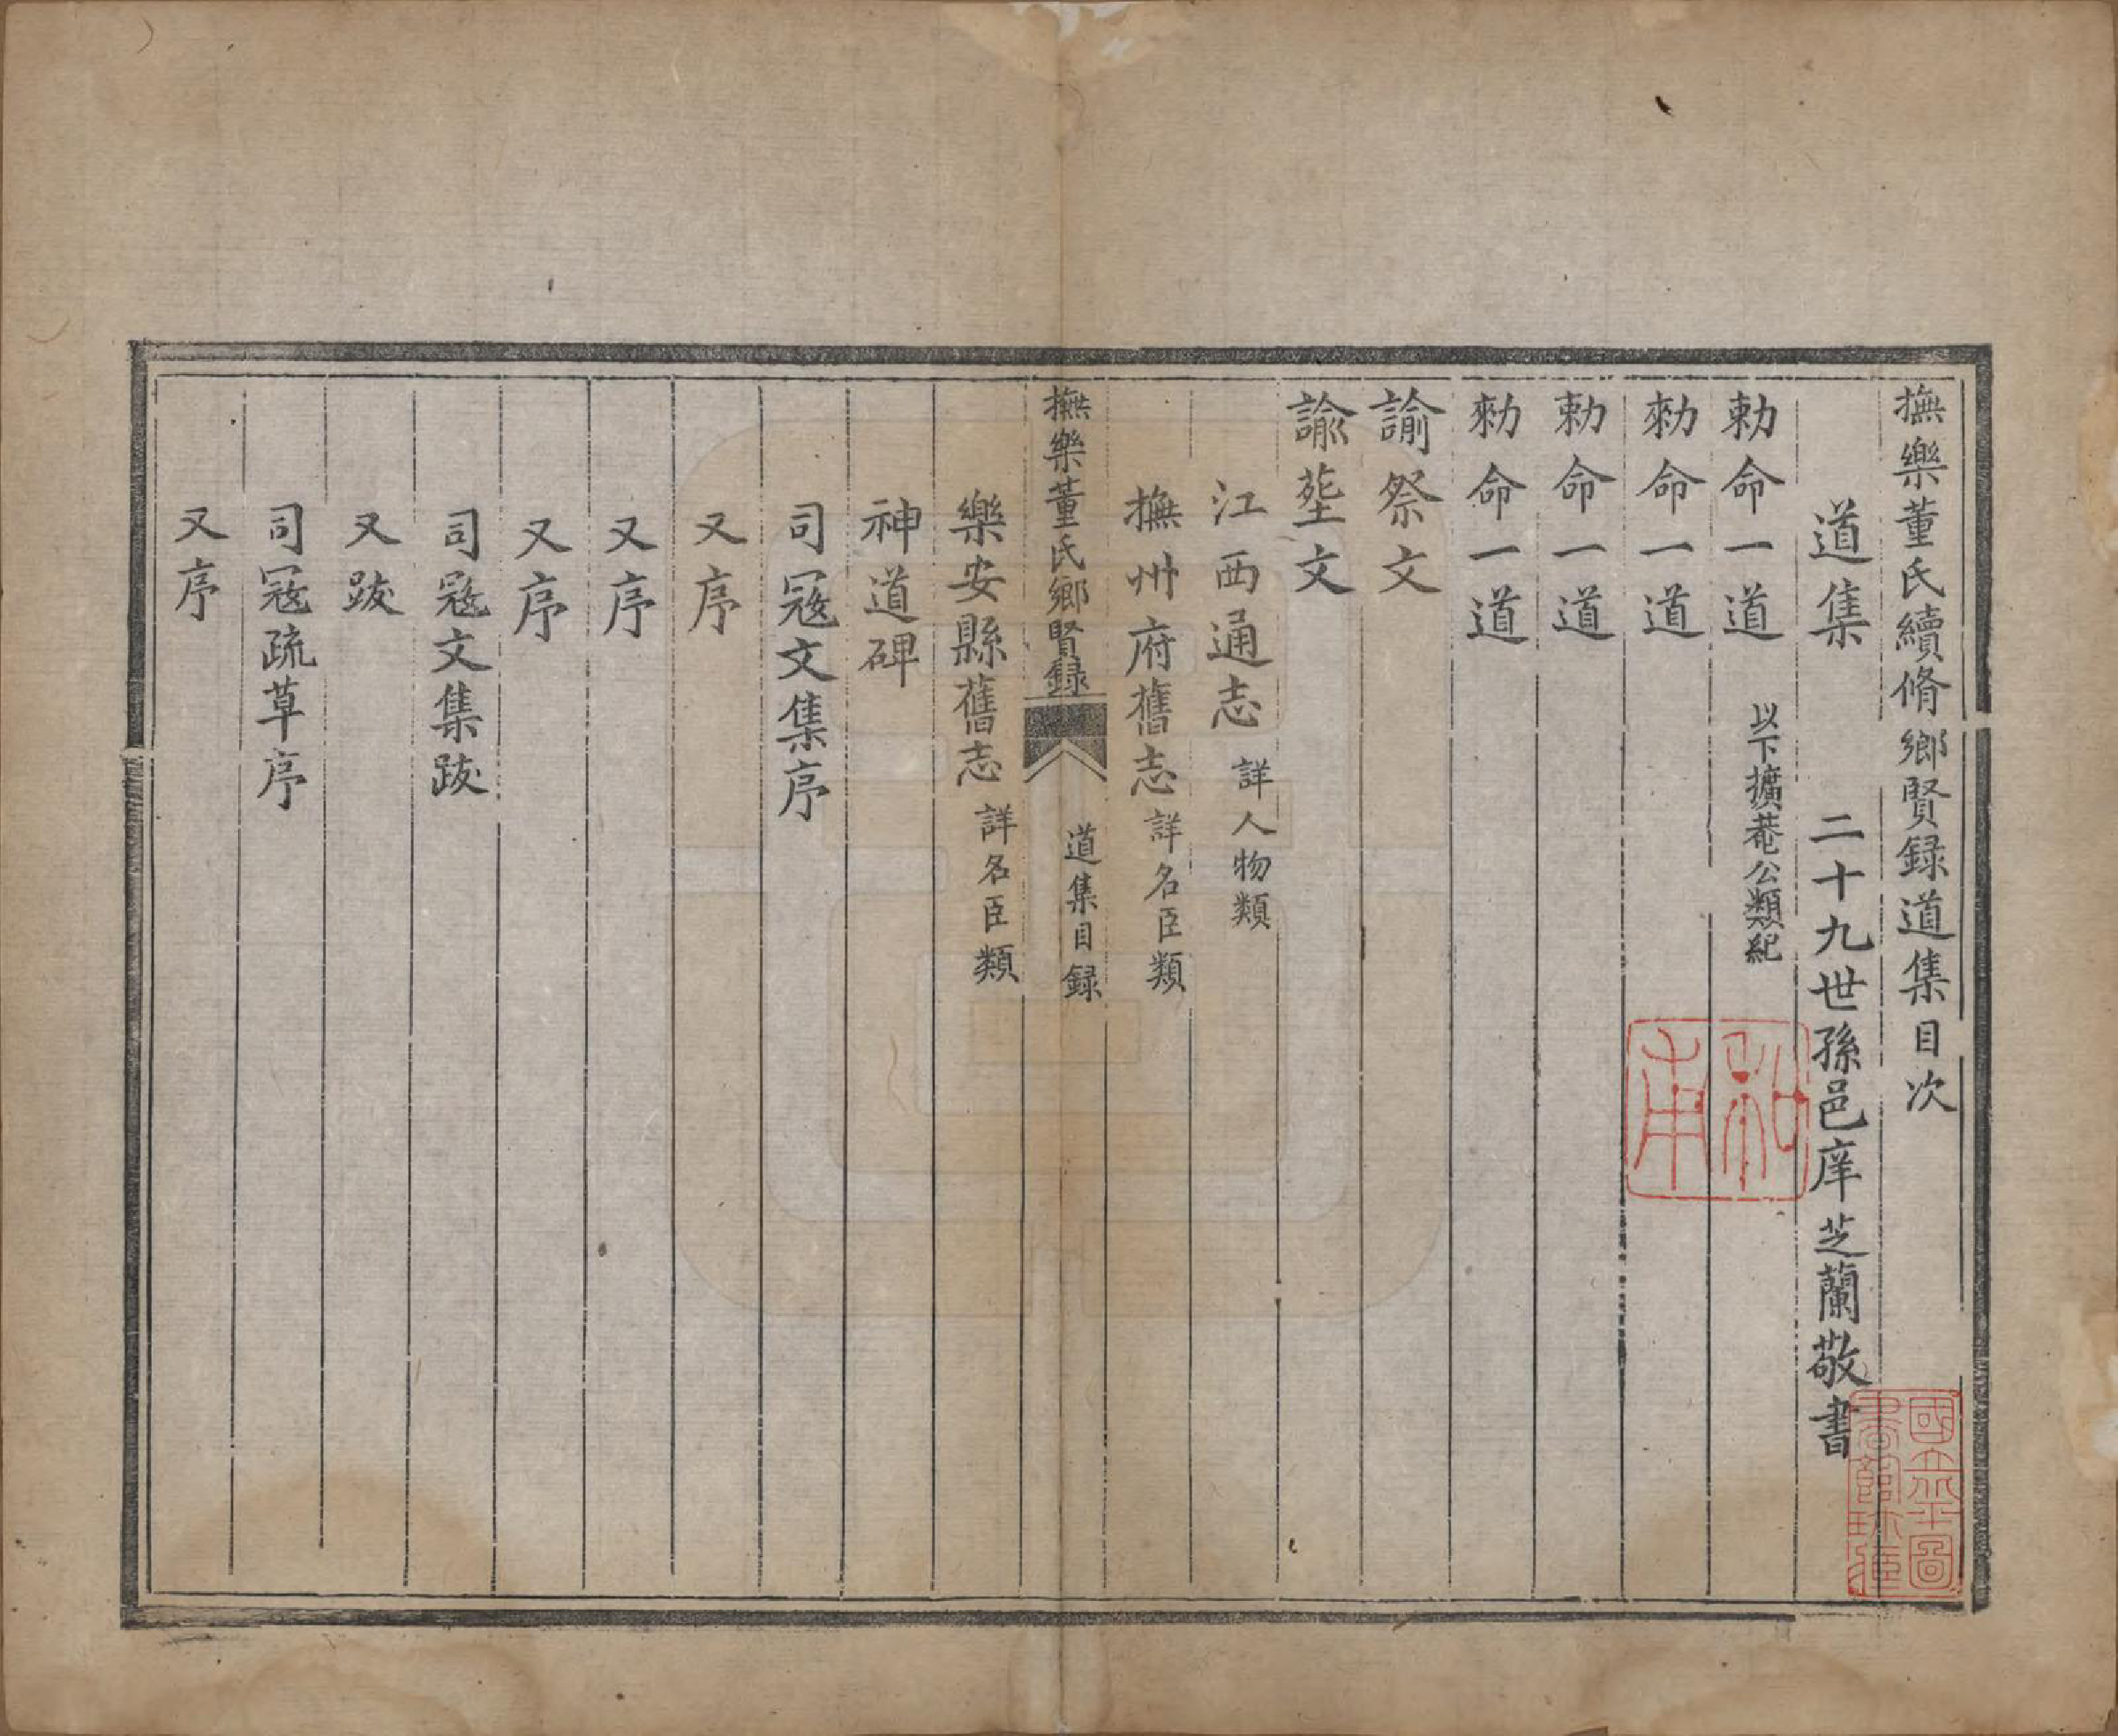 撫樂董氏續脩鄉賢録道集目次
道集　二十九世孫邑庠芝蘭敬書
勅命一道　以下擴菴公類紀
勅命一道
勅命一道
勅命一道
諭祭文
諭塟文
江西通志　詳人物類
撫州府舊志　詳名臣類
撫樂董氏鄉賢録　道集目録
樂安縣舊志　詳名臣類
神道碑
司寇文集序
又序
又序
又序
司寇文集跋
又跋
司寇疏草序
又序
國立北平圖
書館珍藏